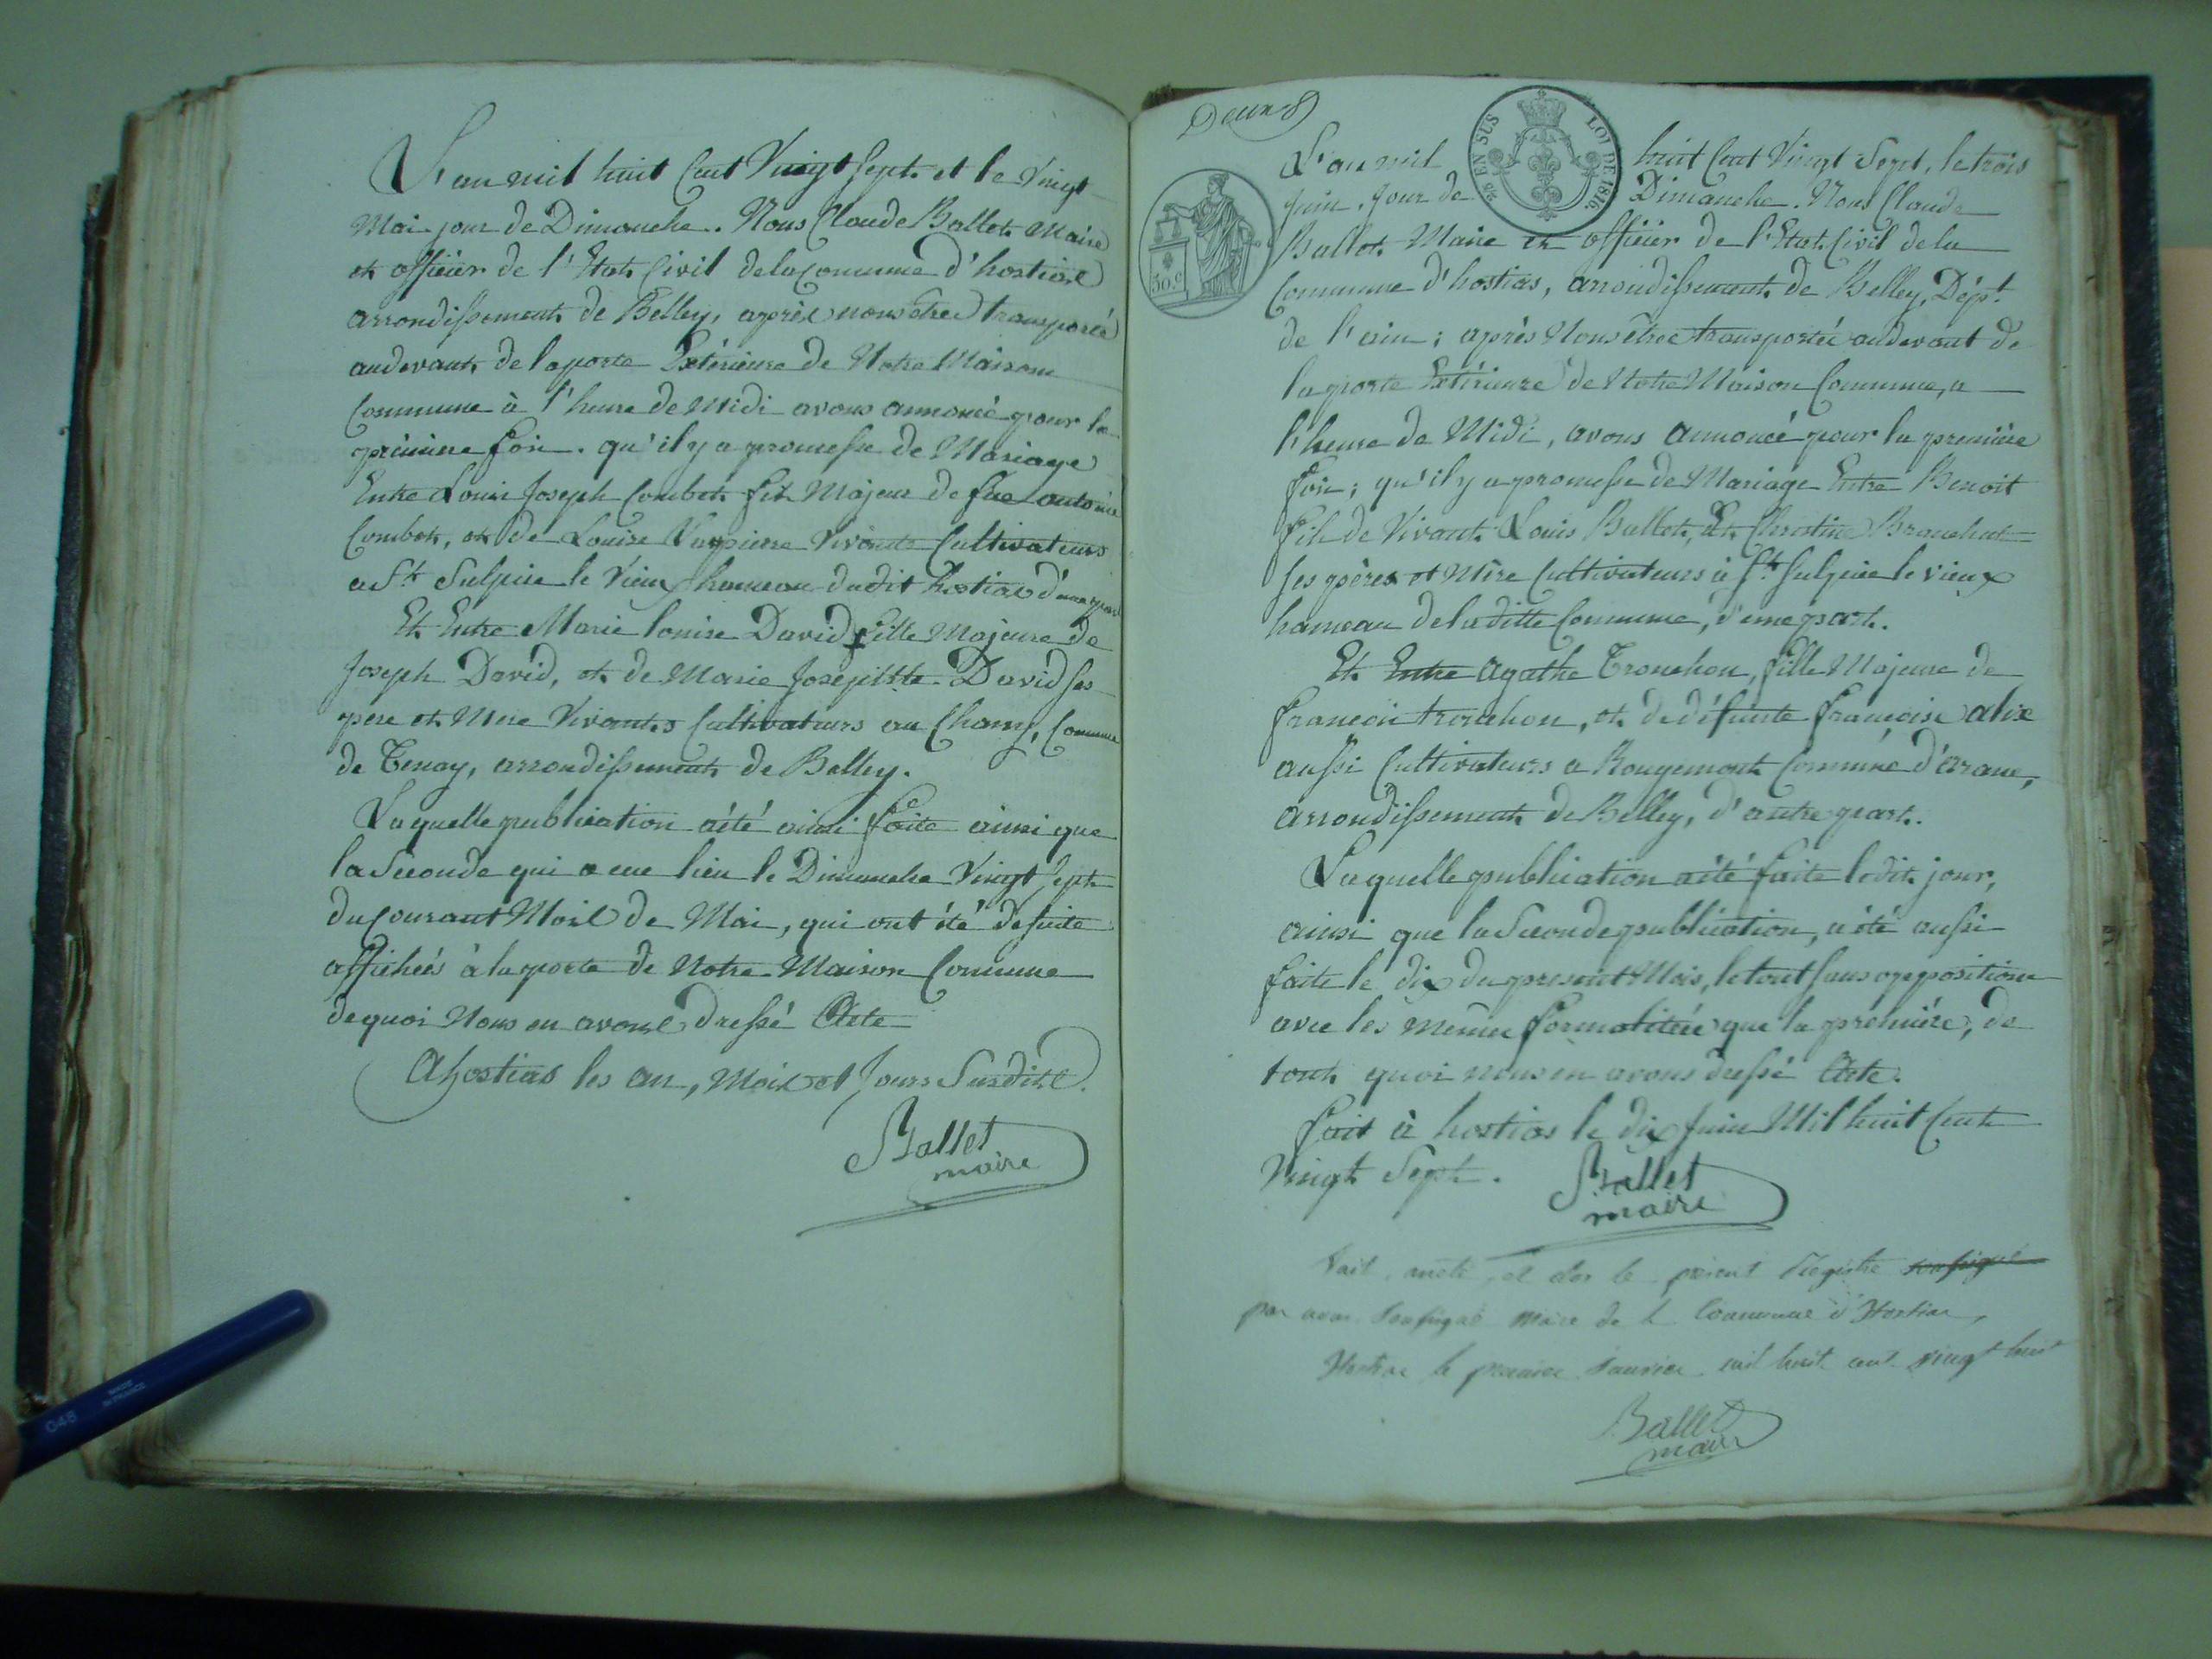 L'an mil huit Cent Vingt Sept. et le Vingt
Mai jour de Dimanche. Nous Claude Ballet Maire
et officier de l'Etat Civil de la Commune d'hostias
arrondissement de Belley, après nous être transporté
au devant de la porte Extérieure de Notre Maison
Commune à l'heure de Midi avons annoncé pour la
première fois. qu'il y a promesse de Mariage
Entre Louis Joseph Combet fils Majeur de feu antoine
Combet, et de Louise vivante Cultivateurs
a St. Sulpice le Vieux hameau dudit hostias d'une part
Et Entre Marie louise David fille Majeure de
Joseph David, et de Marie Josephtte David ses
père et Mère Vivants Cultivateurs au Chanz, Commune
de Tenay, arrondissement de Belley.
Laquelle publication a été ainsi faite ainsi que
la Seconde qui a eue lieu le Dimanche Vingt Sept
du Courant Mois de Mai, qui ont été de suite
affichées à la porte de Notre Maison Commune
de quoi Nous en avons dressé Acte
A hostias les an, Mois et Jours Susdits.
Ballet
maire
Deux
L'an mil huit Cent Vingt Sept, le trois
Juin, Jour de Dimanche. Nous Claude
Ballet Maire et officier de l'Etat Civil de la
Commune d'hostias, arrondissement de Belley, Dépt.
de l'ain; après Nous être transporté au devant de
la porte Extérieure de Notre Maison Commune, a
l'heure de Midi, avons annoncé pour la première
fois; qu'il y a promesse de Mariage Entre Benoit
fils de Vivant Louis Ballet, Et Christine Branchut
ses père et Mère Cultivateurs à St. Sulpice le vieux
hameau de la ditte Commune, d'une part.
Et Entre Agathe Tronchon, fille Majeure de
françois tronchon, et de défunte françoise alix
aussi Cultivateurs a Rougemont Commune d'arane,
arrondissement de Belley, d'autre part.
Laquelle publication a été faite ledit jour,
ainsi que la Seconde publication, a été aussi
faite le dix du present Mois, le tout sans opposition
avec les memes formalitées que la première, de
tout quoi nous en avons dressé Acte.
fait à hostias le dix Juin Mil huit Cent
Vingt Sept.
Ballet
maire
fait, arreté, et clos le présent Registre soussigné
par nous soussigné Maire de la Commune d'Hostias,
Hostias le premier Janvier mil huit cent vingt huit
Ballet
maire
2/5 EN SUS
LOI DE 1816
50.c